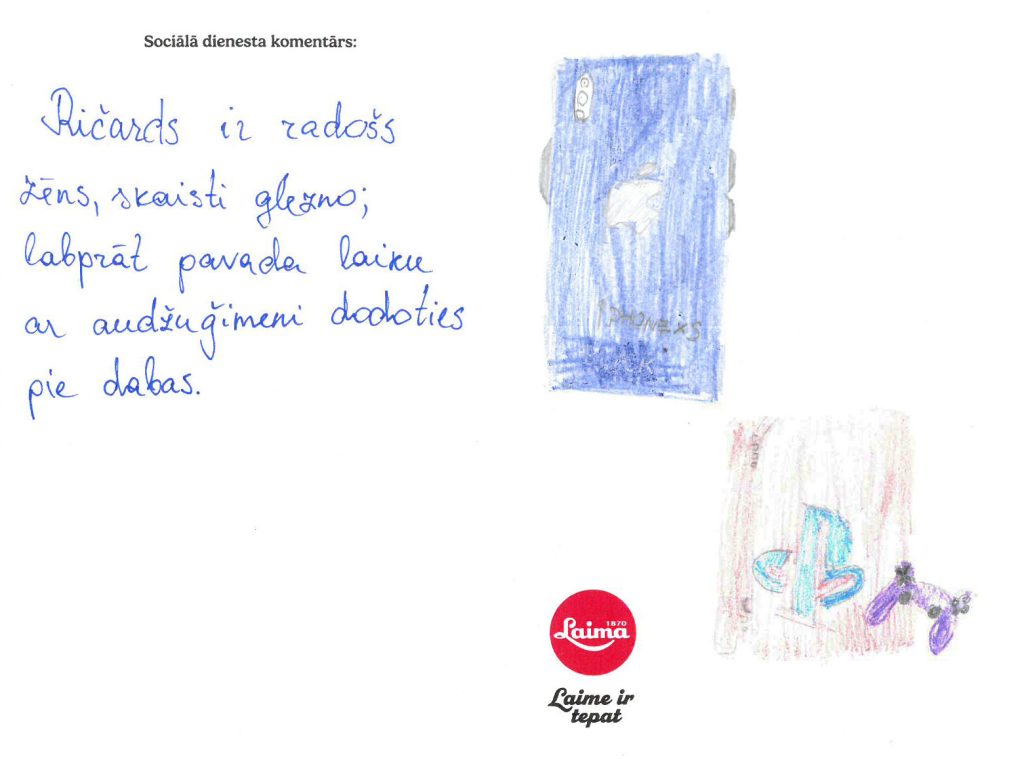 Sociālā dienesta komentārs:
Ričards ir radošs
zēns, skaisti glezno;
labprāt pavada laiku
ar audžuģimeni dodoties
pie dabas.
IPHONE XS
Laima
1870
Laime ir
tepat